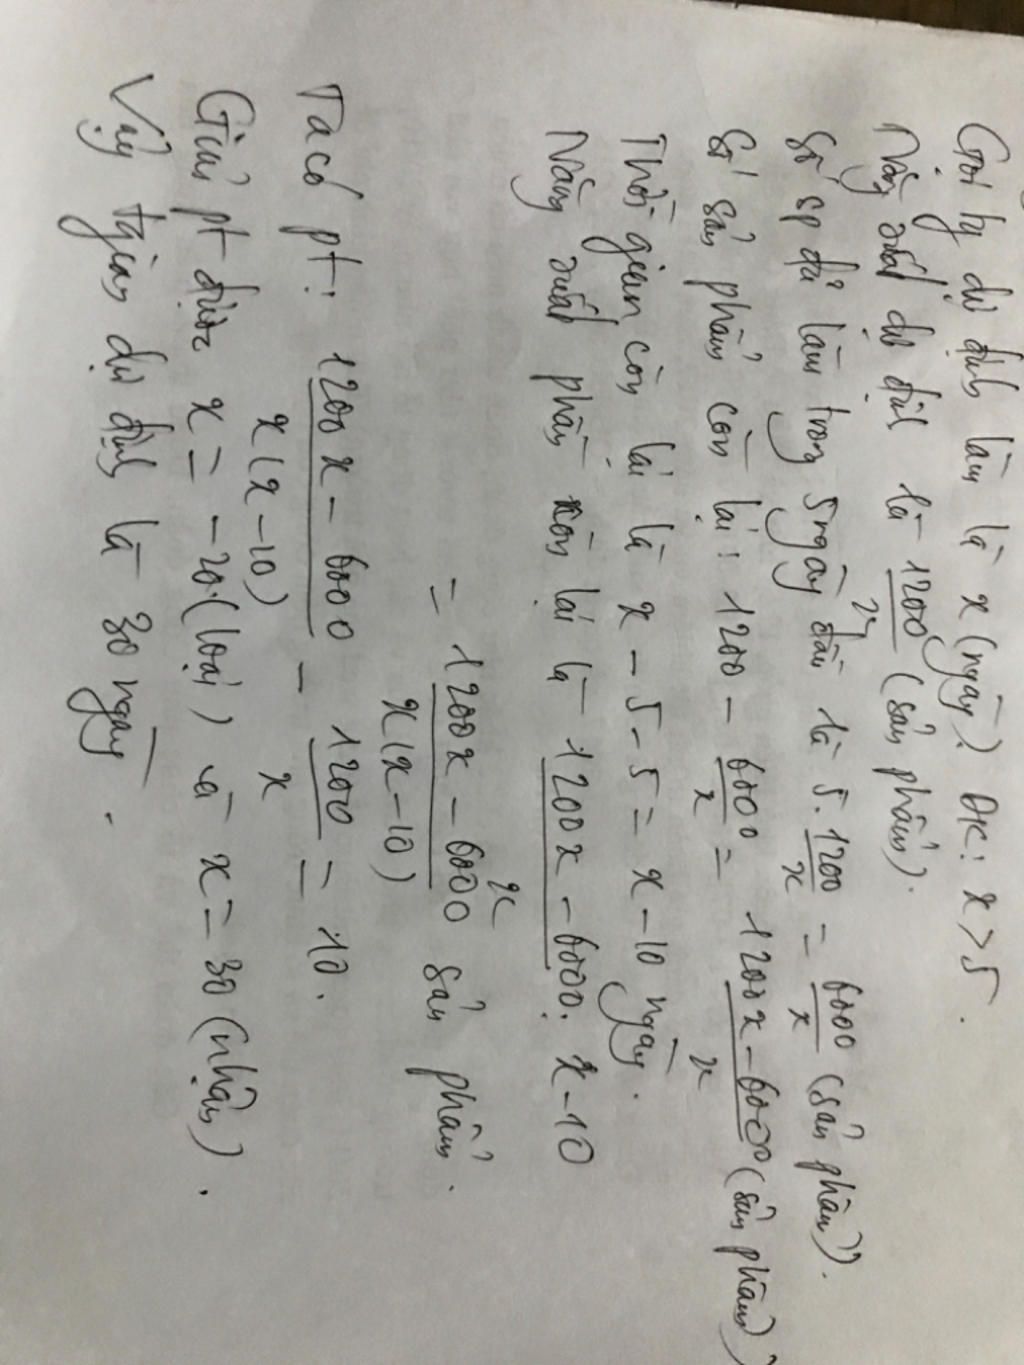 Gọi tg dự định làm là x (ngày). ĐK: x > 5.
Năng suất dự định là 1200/x (sản phẩm).
Số sp đã làm trong 5 ngày đầu là 5. 1200/x = 6000/x (sản phẩm).
Số sản phẩm còn lại: 1200 - 6000/x = 1200x - 6000/x (sản phẩm)
Thời gian còn lại là x - 5 - 5 = x - 10 ngày.
Năng suất phần còn lại là 1200x - 6000/x : x - 10
= 1200x - 6000/x(x - 10) sản phẩm.
Ta có pt: 1200x - 6000/x(x - 10) - 1200/x = 10.
Giải pt được x = -20 (loại) và x = 30 (nhận).
Vậy tgian dự định là 30 ngày.